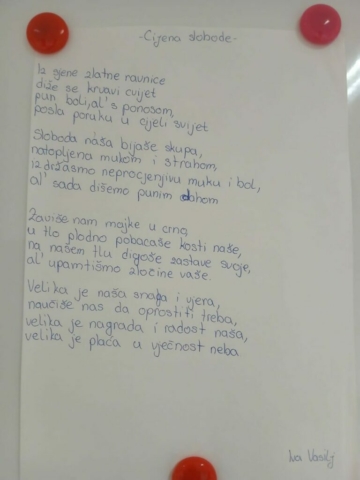 -Cijena slobode-
Iz sjene zlatne ravnice
diše se krvavi cvijet
pun boli, al' s ponosom,
posla poruku u cijeli svijet
Sloboda naša bijaše skupa,
natopljena mukom i strahom,
izdržasmo neprocjenjivu muku i bol,
al' sada dišemo punim dahom
Zaviše nam majke u crno
u tlo plodno pobacaše kosti naše,
na našem tlu digoše zastave svoje,
al' upamtismo zločine vaše.
Velika je naša snaga i vjera,
naučiše nas da oprostiti treba,
velika je nagrada i radost naša,
velika je plaća u vječnost neba
Iva Vasilj